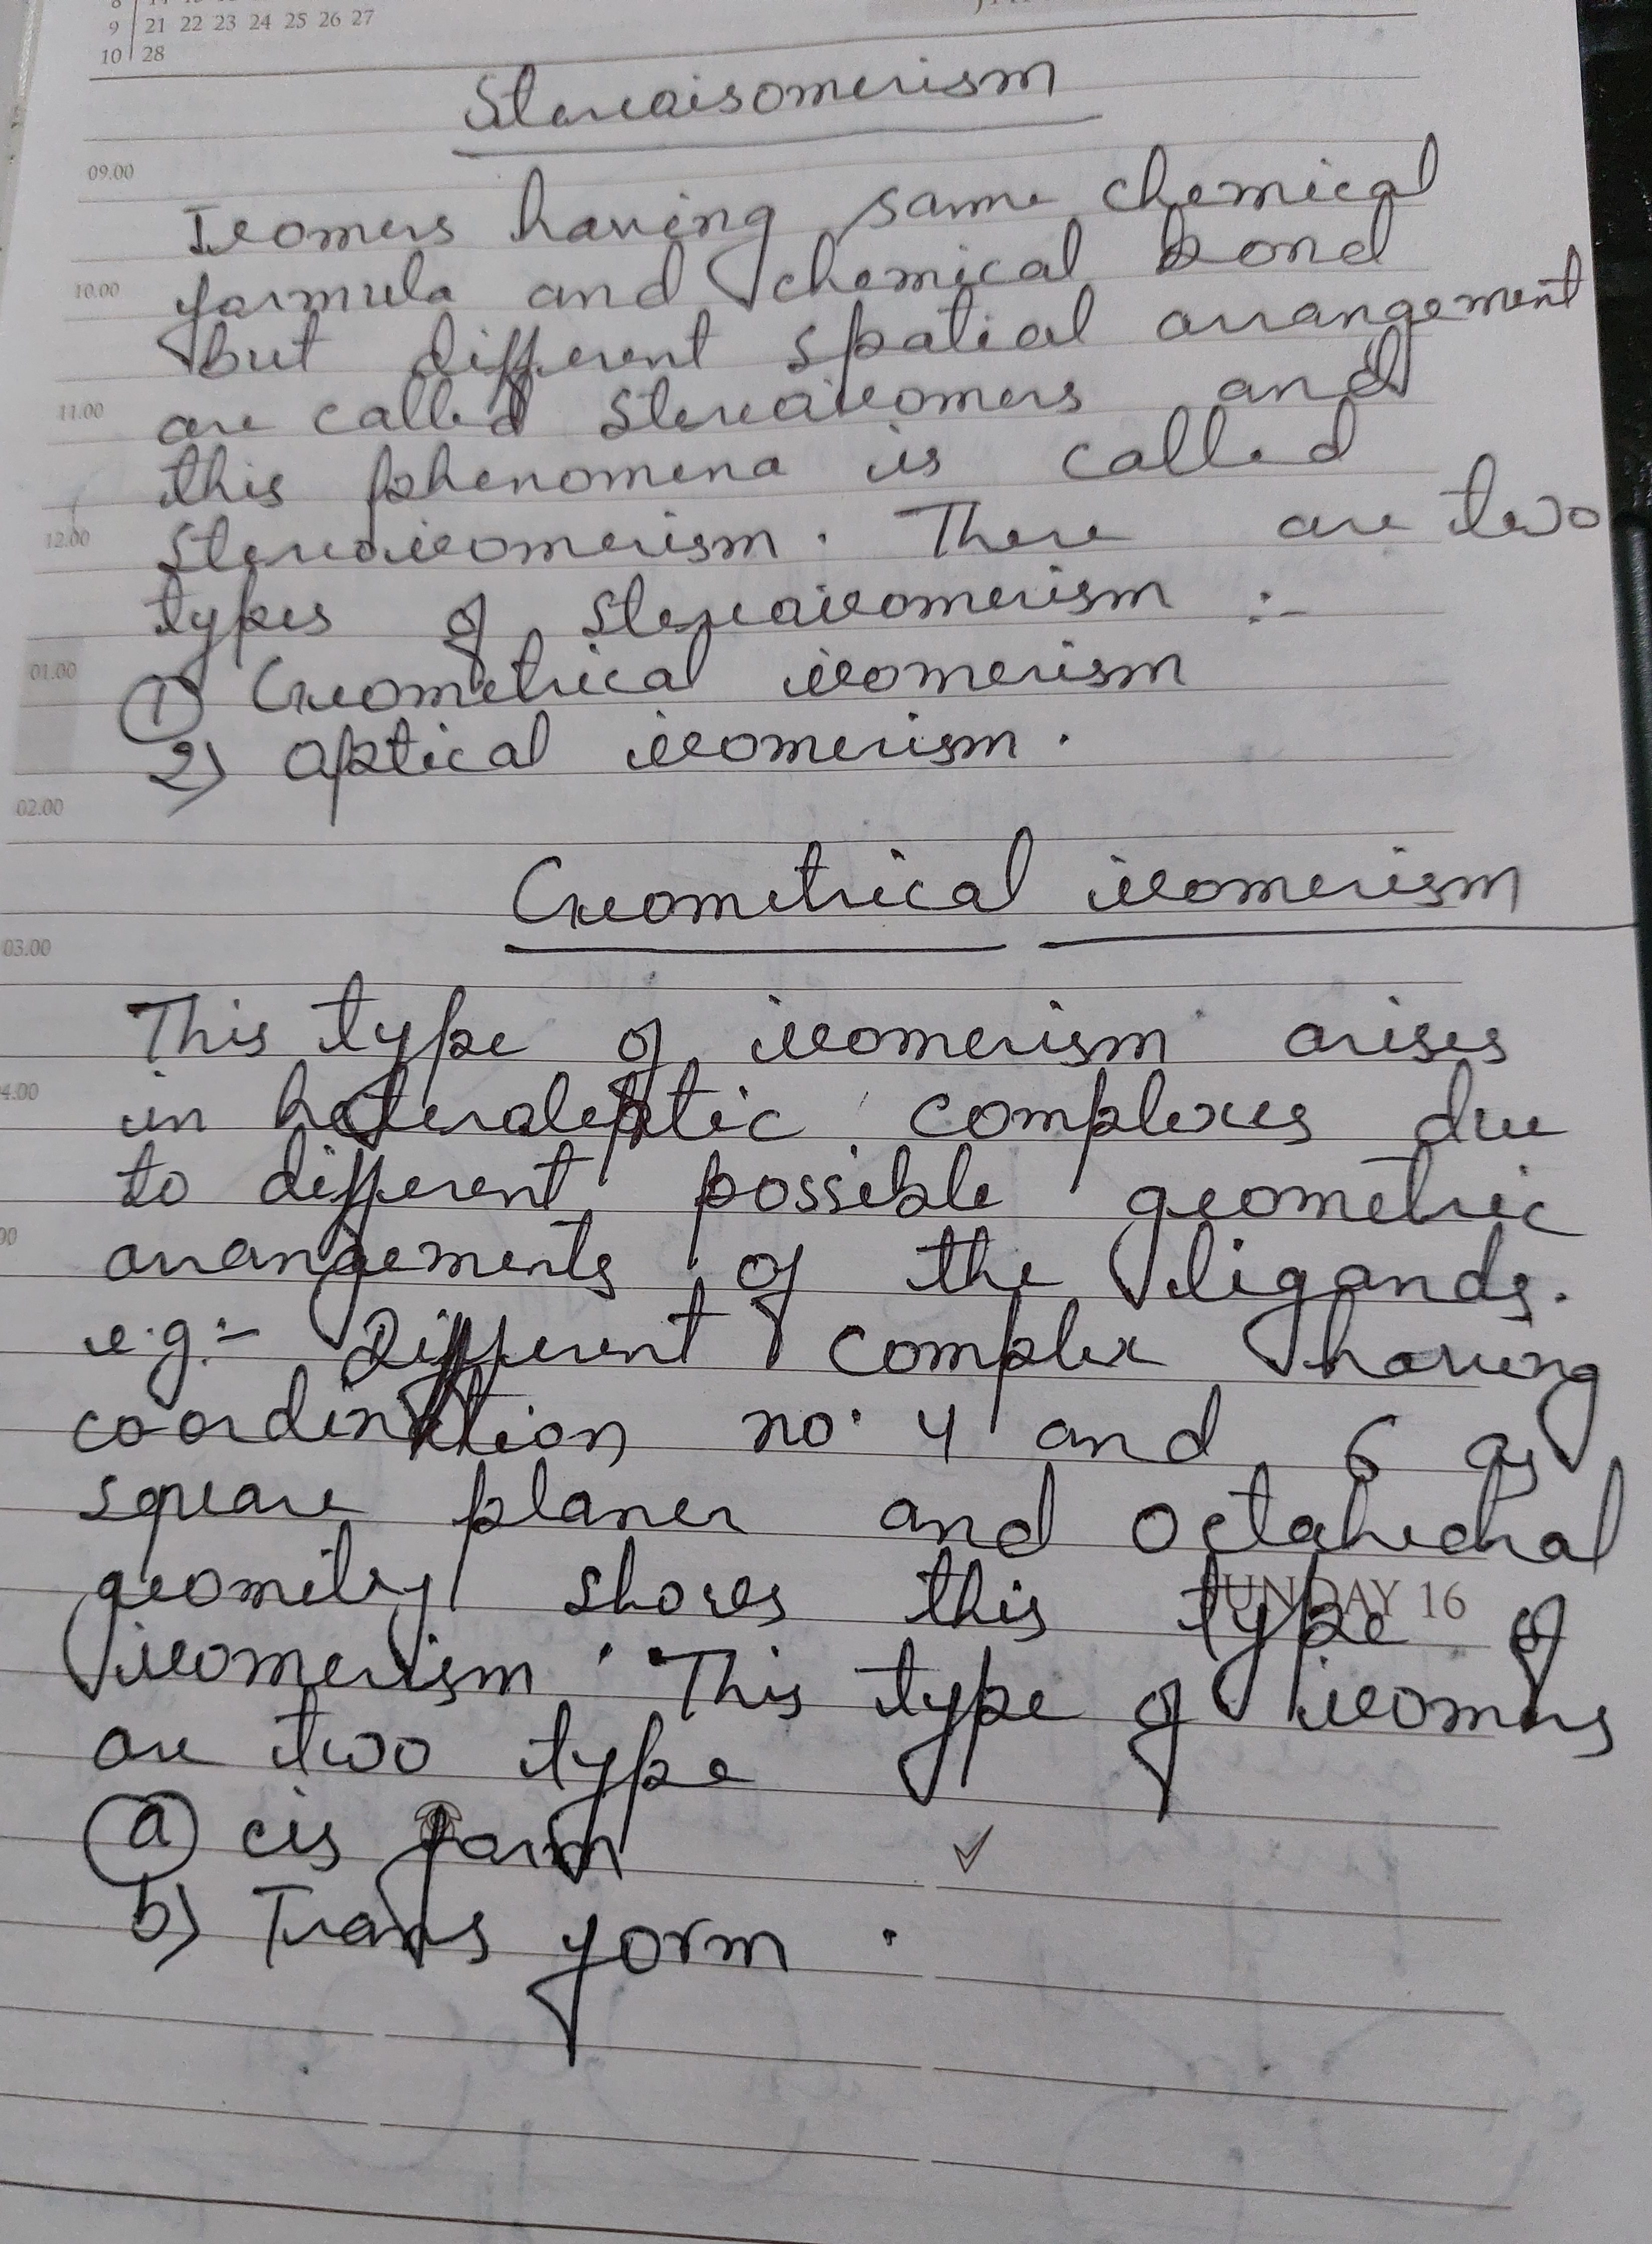 9 21 22 23 24 25 26 27
10 28
Stereoisomerism
09.00
Isomers having same chemical
10.00 formula and chemical bond
but different spatial arrangement
11.00 are called stereoisomers and
this phenomena is called
12.00 stereoisomerism. There are two
types of stereoisomerism :-
01.00 1 Geometrical isomerism
2) optical isomerism.
02.00
Geometrical isomerism
03.00
This type of isomerism arises
4.00 in heteroleptic complexes due
to different possible geometric
00 arrangements of the ligands.
e.g:- Different complex having
co-ordination no. 4 and 6 as
square planer and octahedral
geometry shows this type of
SUNDAY 16
isomerism. This type of isomers
are two type
a cis form ✓
b) Trans form .